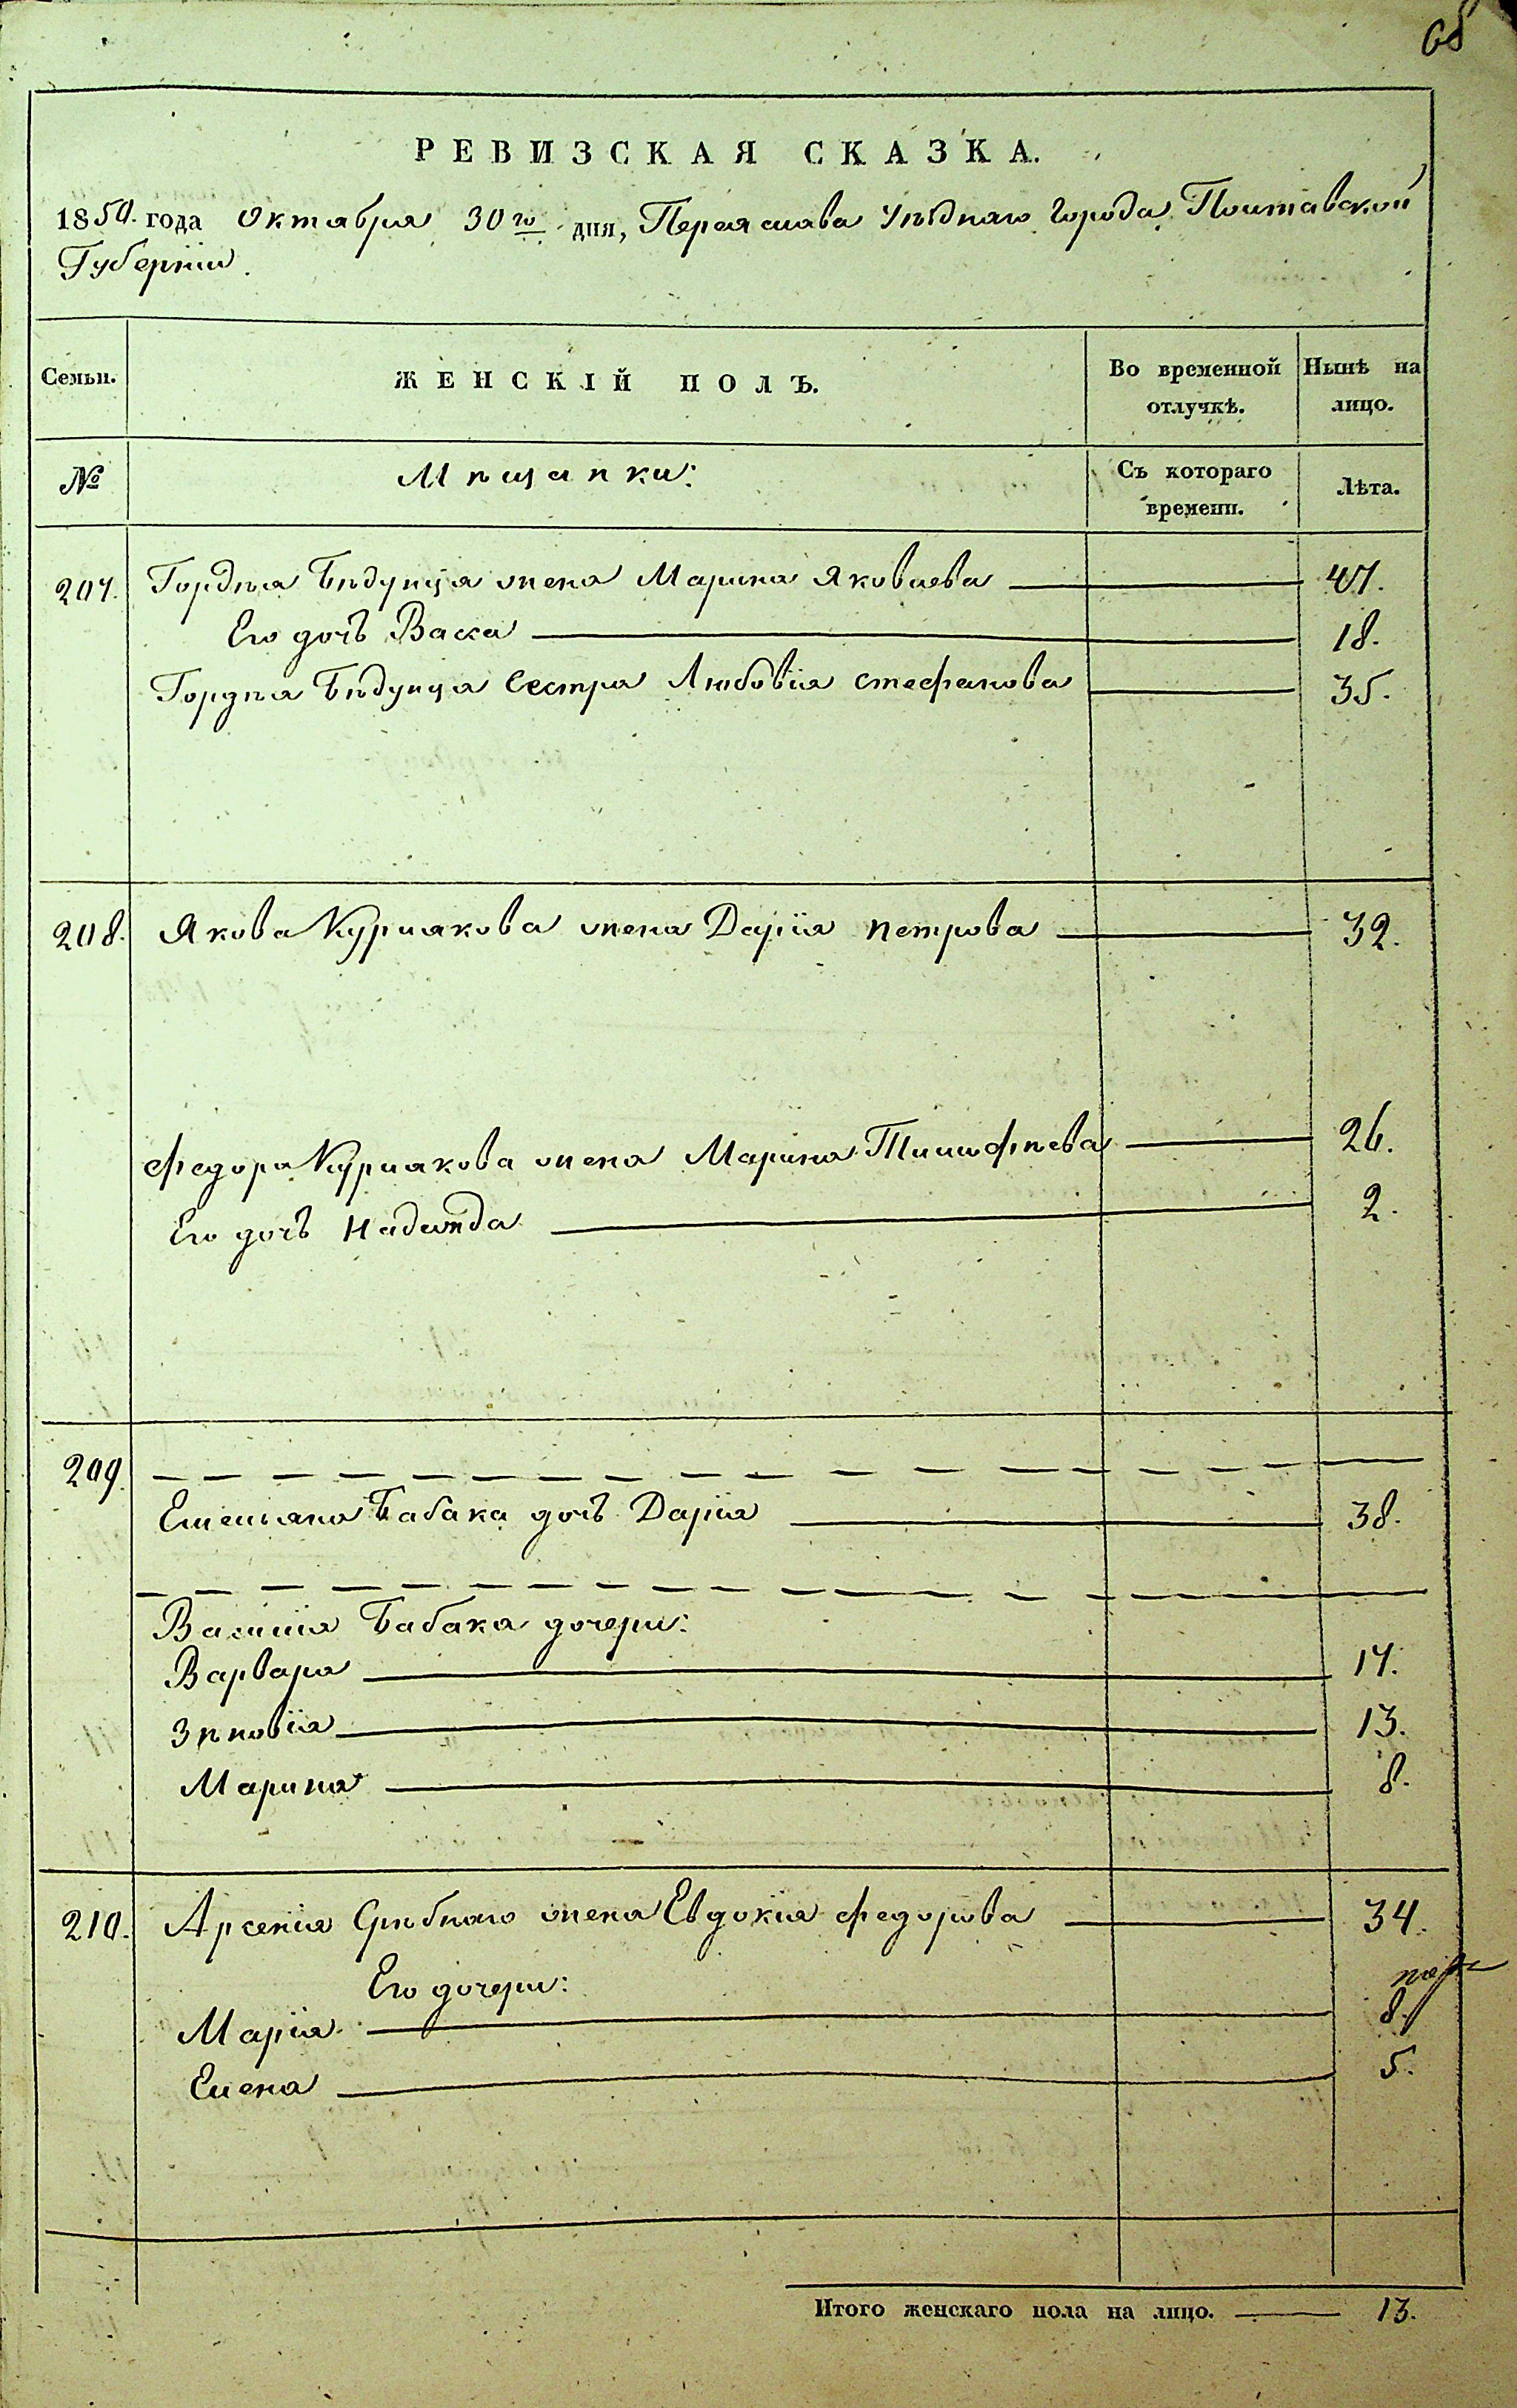 65
РЕВИЗСКАЯ СКАЗКА.
1850. года Октября 30го дня, Переяслава Уѣзднаго Города, Полтавской
Губерніи.
Семьи.
ЖЕНСКІЙ ПОЛЪ.
Во временной отлучкѣ.
Нынѣ на лицо.
№
Мѣщанки:
Съ котораго времени.
Лѣта.
207. Гордѣя Бѣдунца жена Марина Яковлева 47.
Его дочь Васса 18.
Гордѣя Бѣдунца Сестра Любовія Стефанова 35.
208. Якова Курилкова жена Дарія Петрова 32.
Федора Курилкова жена Марина Тимофѣева 26.
Его дочь Надежда 2.
209.
Емельяна Бабака дочь Дарія 38.
Василія Бабака дочери:
Варвара 17.
Зѣновія 13.
Марина 8.
210. Арсенія Срѣбнаго жена Евдокія Федорова 34.
Его дочери:
Марія 8.
Елена 5.
Итого женскаго пола на лицо. 13.